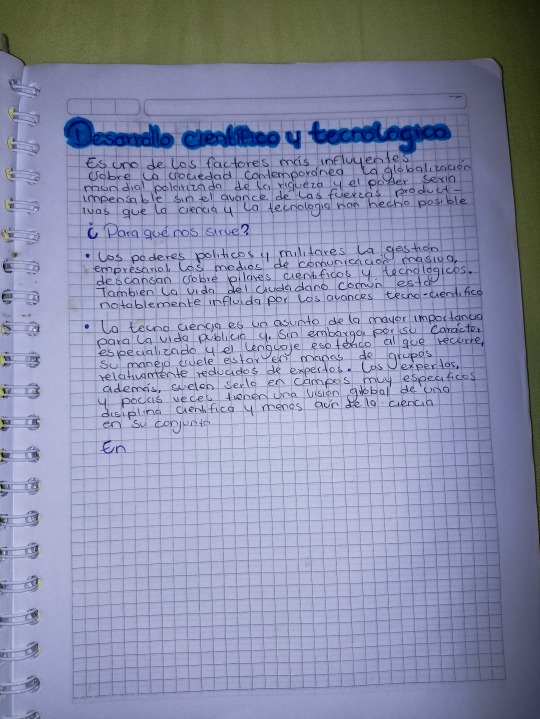 Desarrollo científico y tecnologico
Es uno de los factores más influyentes
sobre la sociedad contemporánea la globalización
mundial polarizada de la riqueza y el poder seria
impensable sin el avance de las fuerzas product-
ivas que la ciencia y la tecnologia han hecho posible
¿Para que nos sirve?
• Los poderes politicos y militares la gestión
empresarial los medios de comunicación masiva,
descansan sobre pilares cientificos y tecnologicos.
Tambien la vida del ciudadano común esta
notablemente influida por los avances tecno-científico
• La tecno ciencia es un asunto de la mayor importancia
para la vida publica y, sin embargo por su carácter
especializado y el lenguaje esotérico al que recorre,
su manejo suele estar en manos de grupos
relativamente reducados de expertos. Los expertos,
además, suelen serlo en campos muy especificos
y pocas veces tienen una visión global de una
disiplina cientifica y menos aún de la ciencia
en su conjunto
En